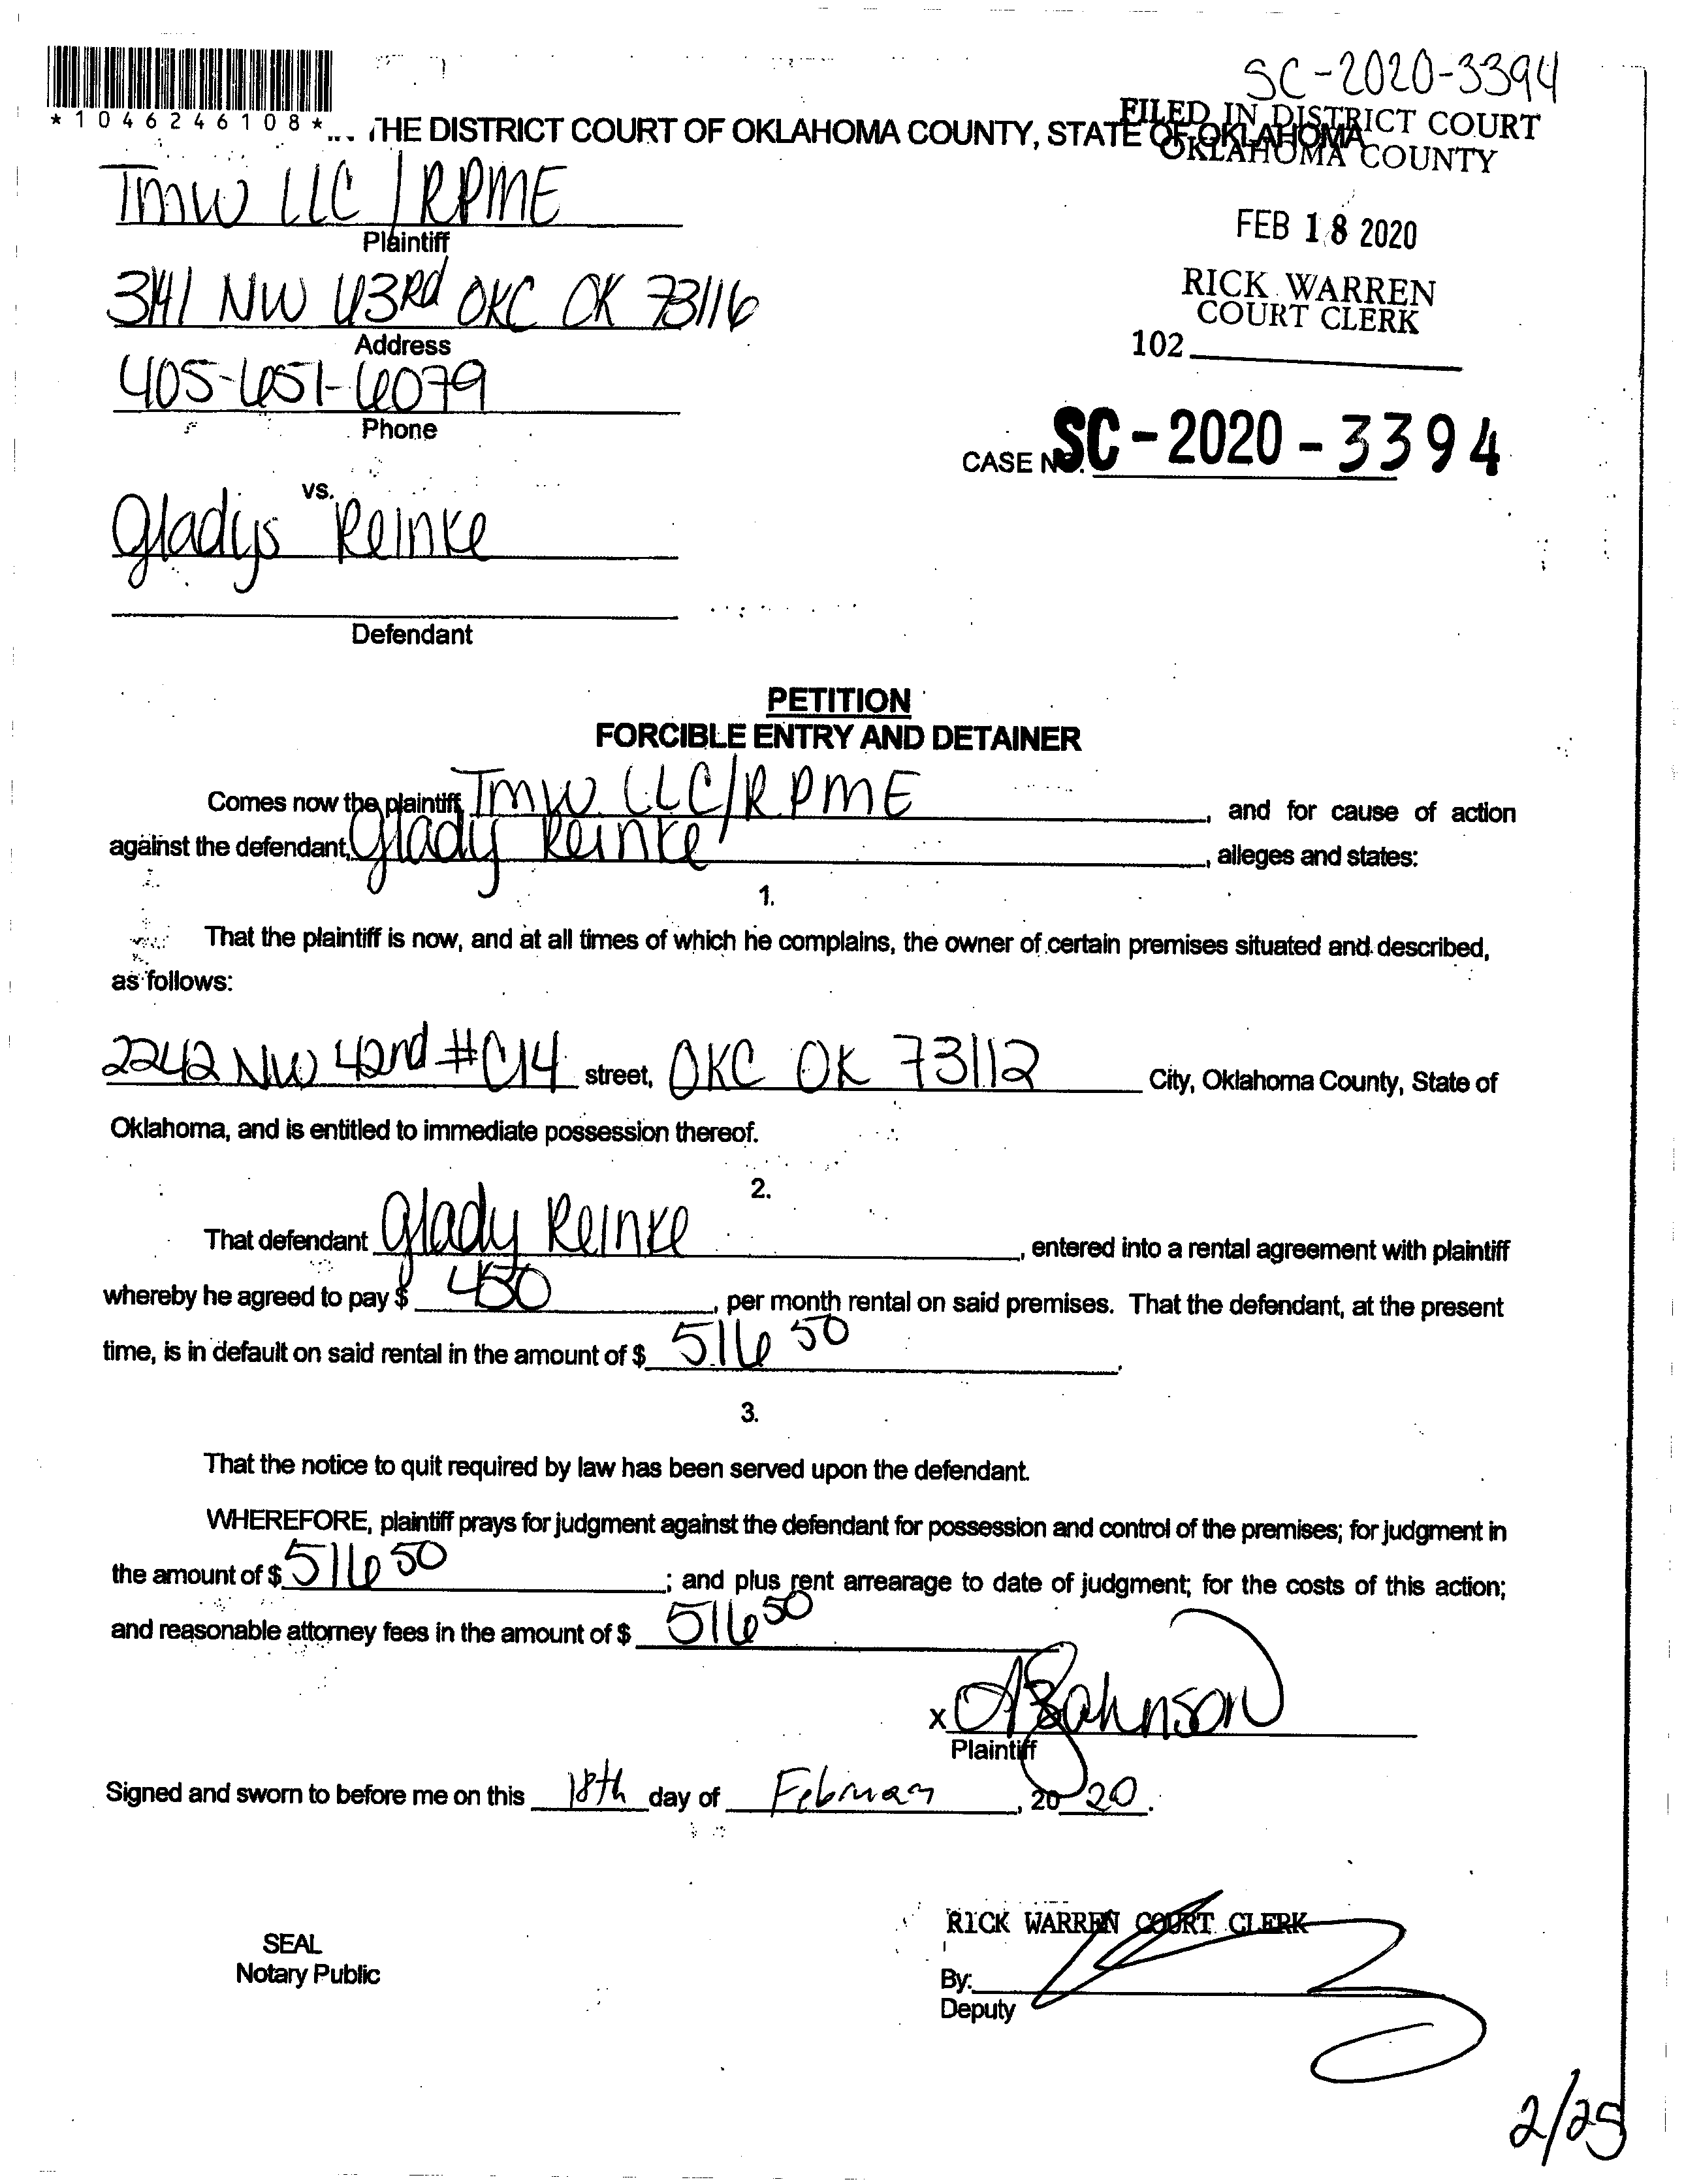 SC-2020-3394
*1046246108*
THE DISTRICT COURT OF OKLAHOMA COUNTY, STATE OF OKLAHOMA
FILED IN DISTRICT COURT
OKLAHOMA COUNTY
TMW LLC / RPME
Plaintiff
FEB 18 2020
3141 NW 63Rd OKC OK 73116
Address
RICK WARREN
COURT CLERK
102
405-651-6079
Phone
CASE NO. SC-2020-3394
vs.
Gladys Reinke
Defendant
PETITION
FORCIBLE ENTRY AND DETAINER
Comes now the plaintiff TMW LLC/RPME, and for cause of action
against the defendant, Glady Reinke, alleges and states:
1.
That the plaintiff is now, and at all times of which he complains, the owner of certain premises situated and described,
as follows:
2242 NW 42nd #C14 street, OKC OK 73112 City, Oklahoma County, State of
Oklahoma, and is entitled to immediate possession thereof.
2.
That defendant Glady Reinke, entered into a rental agreement with plaintiff
whereby he agreed to pay $ 450, per month rental on said premises. That the defendant, at the present
time, is in default on said rental in the amount of $ 516 50.
3.
That the notice to quit required by law has been served upon the defendant.
WHEREFORE, plaintiff prays for judgment against the defendant for possession and control of the premises; for judgment in
the amount of $ 516 50; and plus rent arrearage to date of judgment; for the costs of this action;
and reasonable attorney fees in the amount of $ 516 50
x A Johnson
Plaintiff
Signed and sworn to before me on this 18th day of February, 20 20.
RICK WARREN COURT CLERK
SEAL
Notary Public
By:
Deputy
2/25